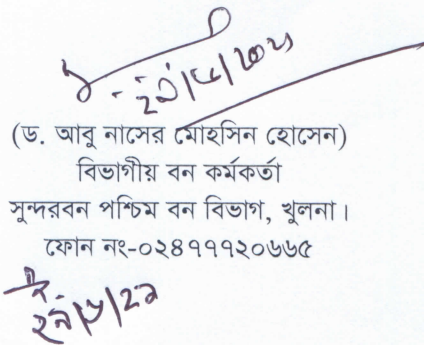 (ড. আবু নাসের মোহসিন হোসেন)
বিভাগীয় বন কর্মকর্তা
সুন্দরবন পশ্চিম বন বিভাগ, খুলনা।
ফোন নং-০২৪৭৭৭২০৬৬৫